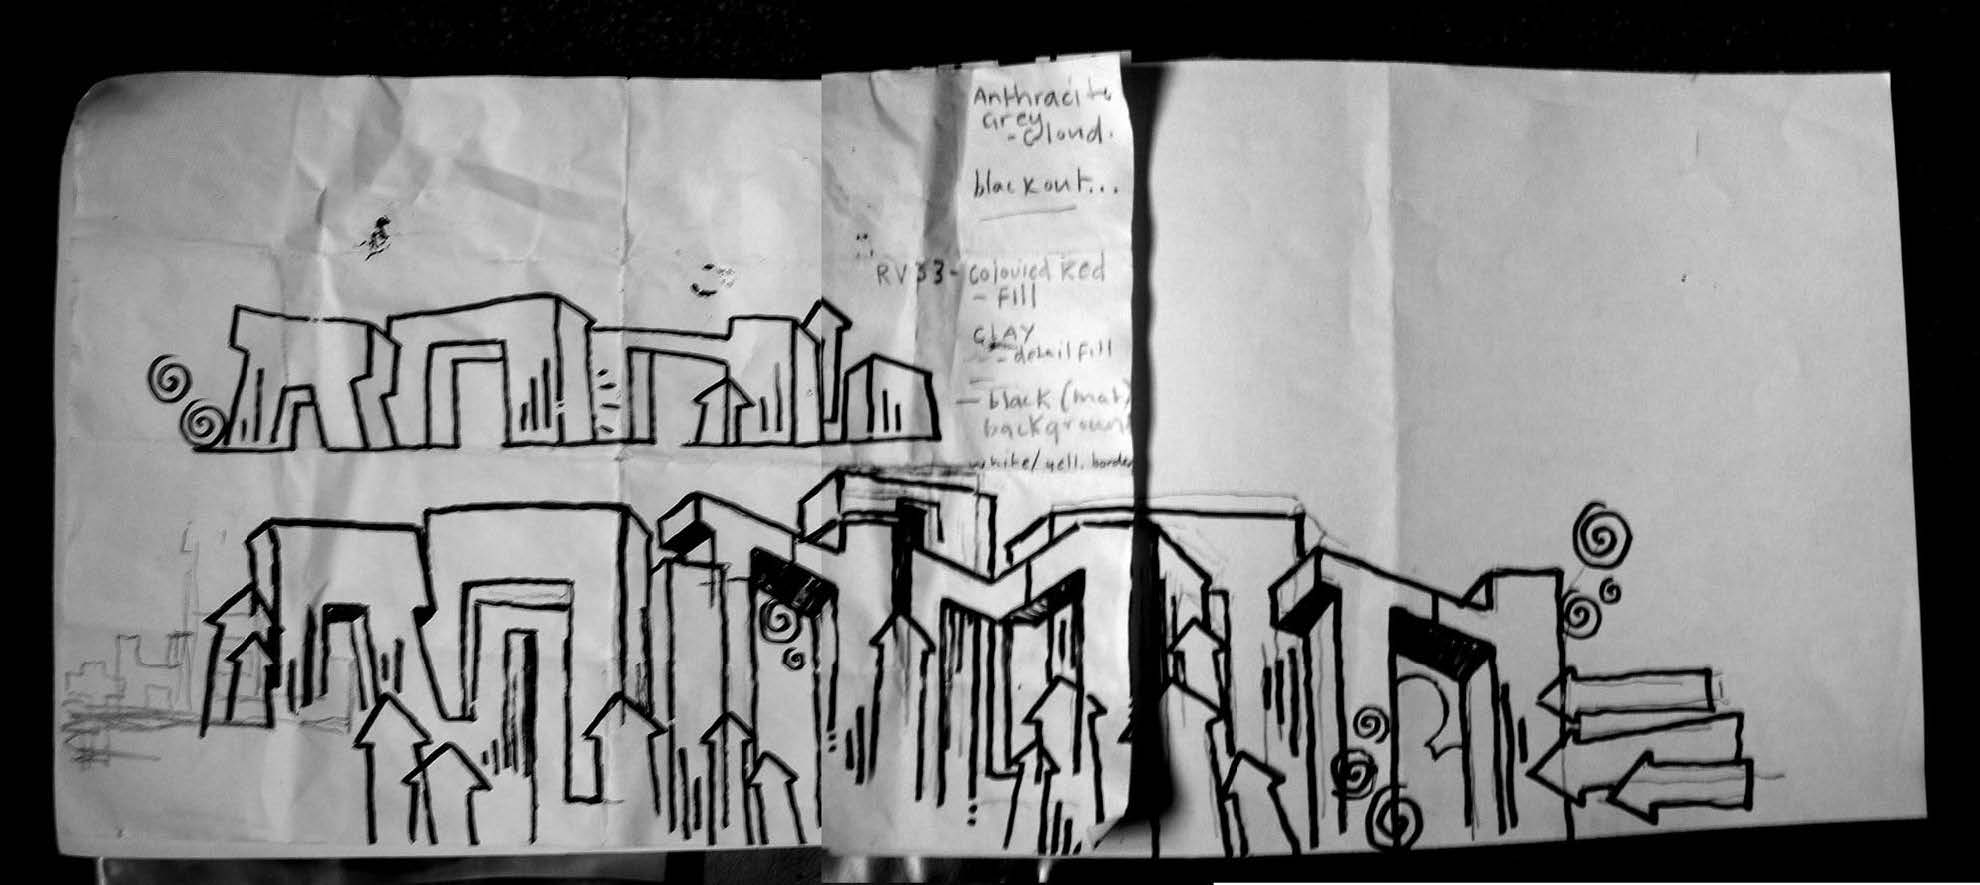 Anthracite
Grey
- cloud.
blackout...
RV33 - Coloured Red
- Fill
CLAY
- detail fill
- black (mat)
background
white/yell. border